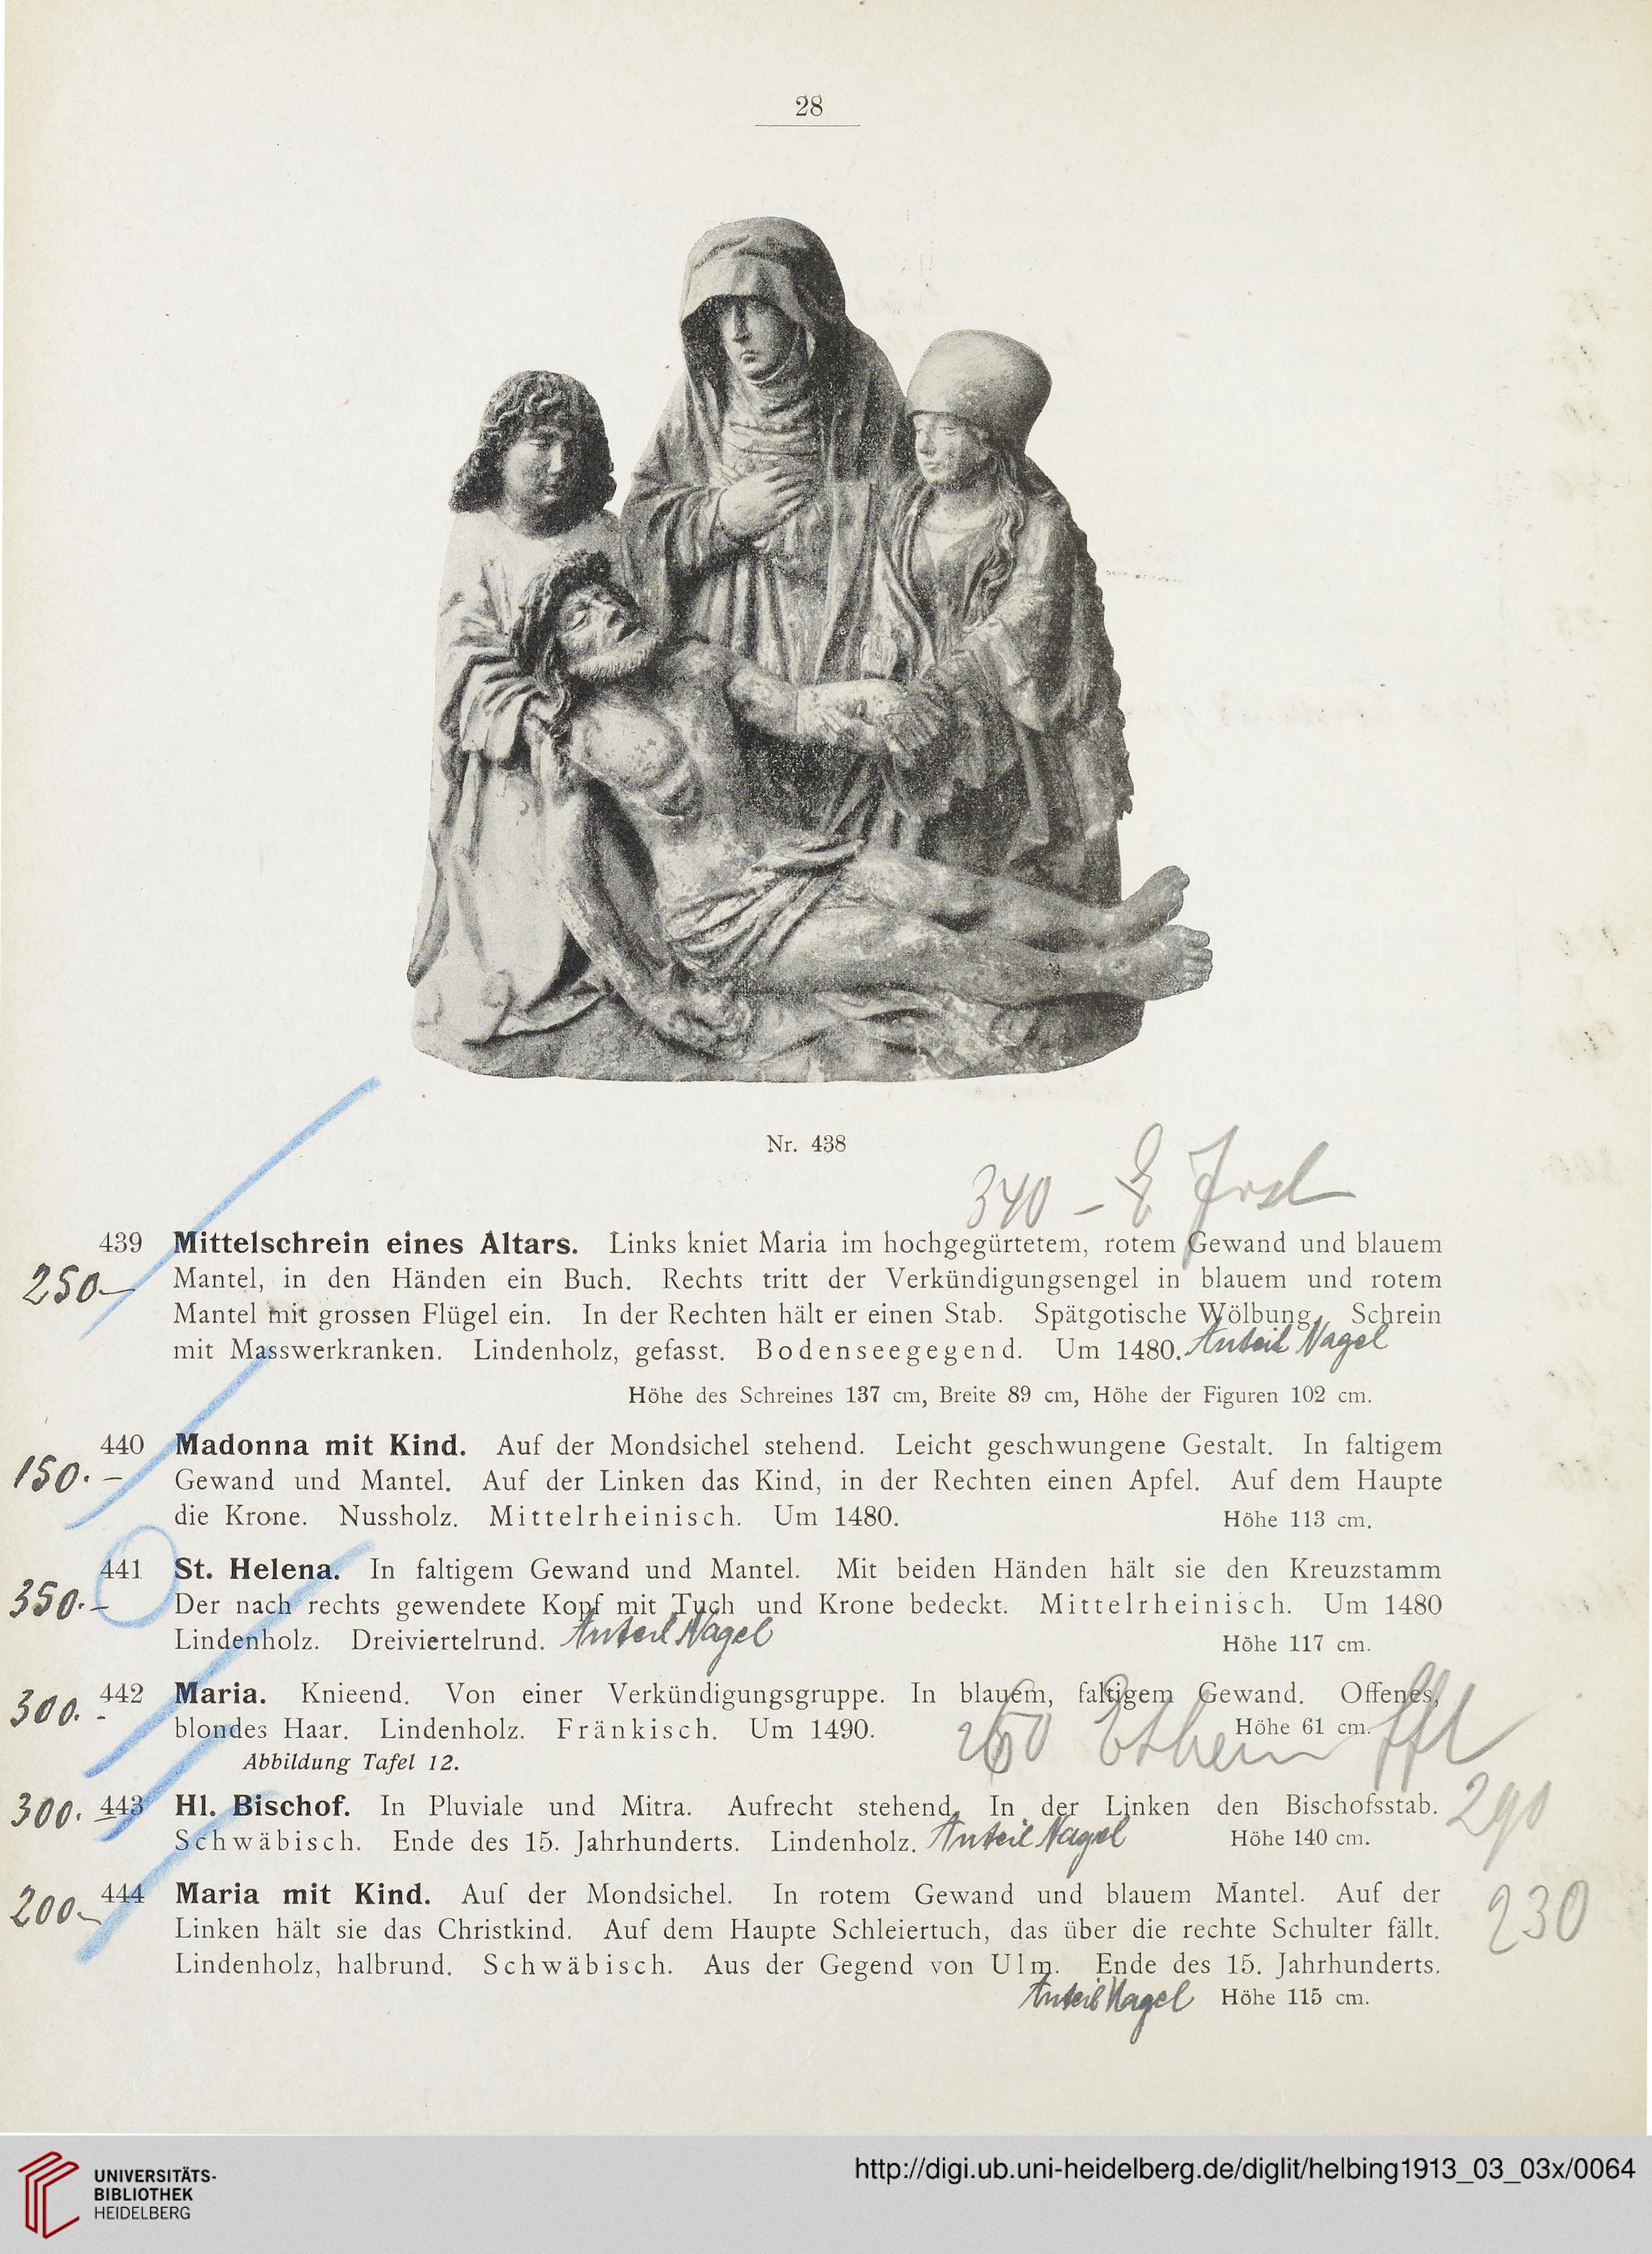 28
Nr. 438
340 –
439 Mittelschrein eines Altars. Links kniet Maria im hochgegürtetem, rotem Gewand und blauem
250.– Mantel, in den Händen ein Buch. Rechts tritt der Verkündigungsengel in blauem und rotem
Mantel mit grossen Flügel ein. In der Rechten hält er einen Stab. Spätgotische Wölbung. Schrein
mit Masswerkranken. Lindenholz, gefasst. Bodenseegegend. Um 1480. Anteil Nagel
Höhe des Schreines 137 cm, Breite 89 cm, Höhe der Figuren 102 cm.
440 Madonna mit Kind. Auf der Mondsichel stehend. Leicht geschwungene Gestalt. In faltigem
150.– Gewand und Mantel. Auf der Linken das Kind, in der Rechten einen Apfel. Auf dem Haupte
die Krone. Nussholz. Mittelrheinisch. Um 1480. Höhe 113 cm.
441 St. Helena. In faltigem Gewand und Mantel. Mit beiden Händen hält sie den Kreuzstamm
350.– Der nach rechts gewendete Kopf mit Tuch und Krone bedeckt. Mittelrheinisch. Um 1480
Lindenholz. Dreiviertelrund. Anteil Nagel Höhe 117 cm.
300.– 442 Maria. Knieend. Von einer Verkündigungsgruppe. In blauem, faltigem Gewand. Offenes,
blondes Haar. Lindenholz. Fränkisch. Um 1490. 260 Höhe 61 cm.
Abbildung Tafel 12.
300.– 443 Hl. Bischof. In Pluviale und Mitra. Aufrecht stehend. In der Linken den Bischofsstab. 290
Schwäbisch. Ende des 15. Jahrhunderts. Lindenholz. Anteil Nagel Höhe 140 cm.
200.– 444 Maria mit Kind. Auf der Mondsichel. In rotem Gewand und blauem Mantel. Auf der 230
Linken hält sie das Christkind. Auf dem Haupte Schleiertuch, das über die rechte Schulter fällt.
Lindenholz, halbrund. Schwäbisch. Aus der Gegend von Ulm. Ende des 15. Jahrhunderts.
Anteil Nagel Höhe 115 cm.
UNIVERSITÄTS-
BIBLIOTHEK
HEIDELBERG
http://digi.ub.uni-heidelberg.de/diglit/helbing1913_03_03x/0064